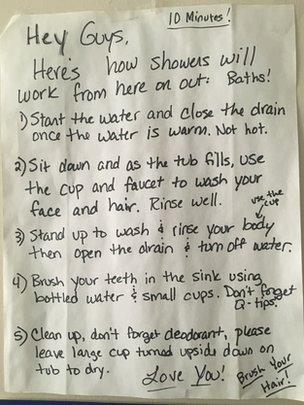 10 Minutes!
Hey Guys,
Here's how showers will
work from here on out: Baths!
1) Start the water and close the drain
once the water is warm. Not hot.
2) Sit down and as the tub fills, use
the cup and faucet to wash your
face and hair. Rinse well.
use the
cup
3) Stand up to wash & rinse your body
then open the drain & turn off water.
4) Brush your teeth in the sink using
bottled water & small cups. Don't forget
Q-tips!
5) Clean up, don't forget deodorant, please
leave large cup turned upside down on
tub to dry.
Love You!
Brush Your
Hair!